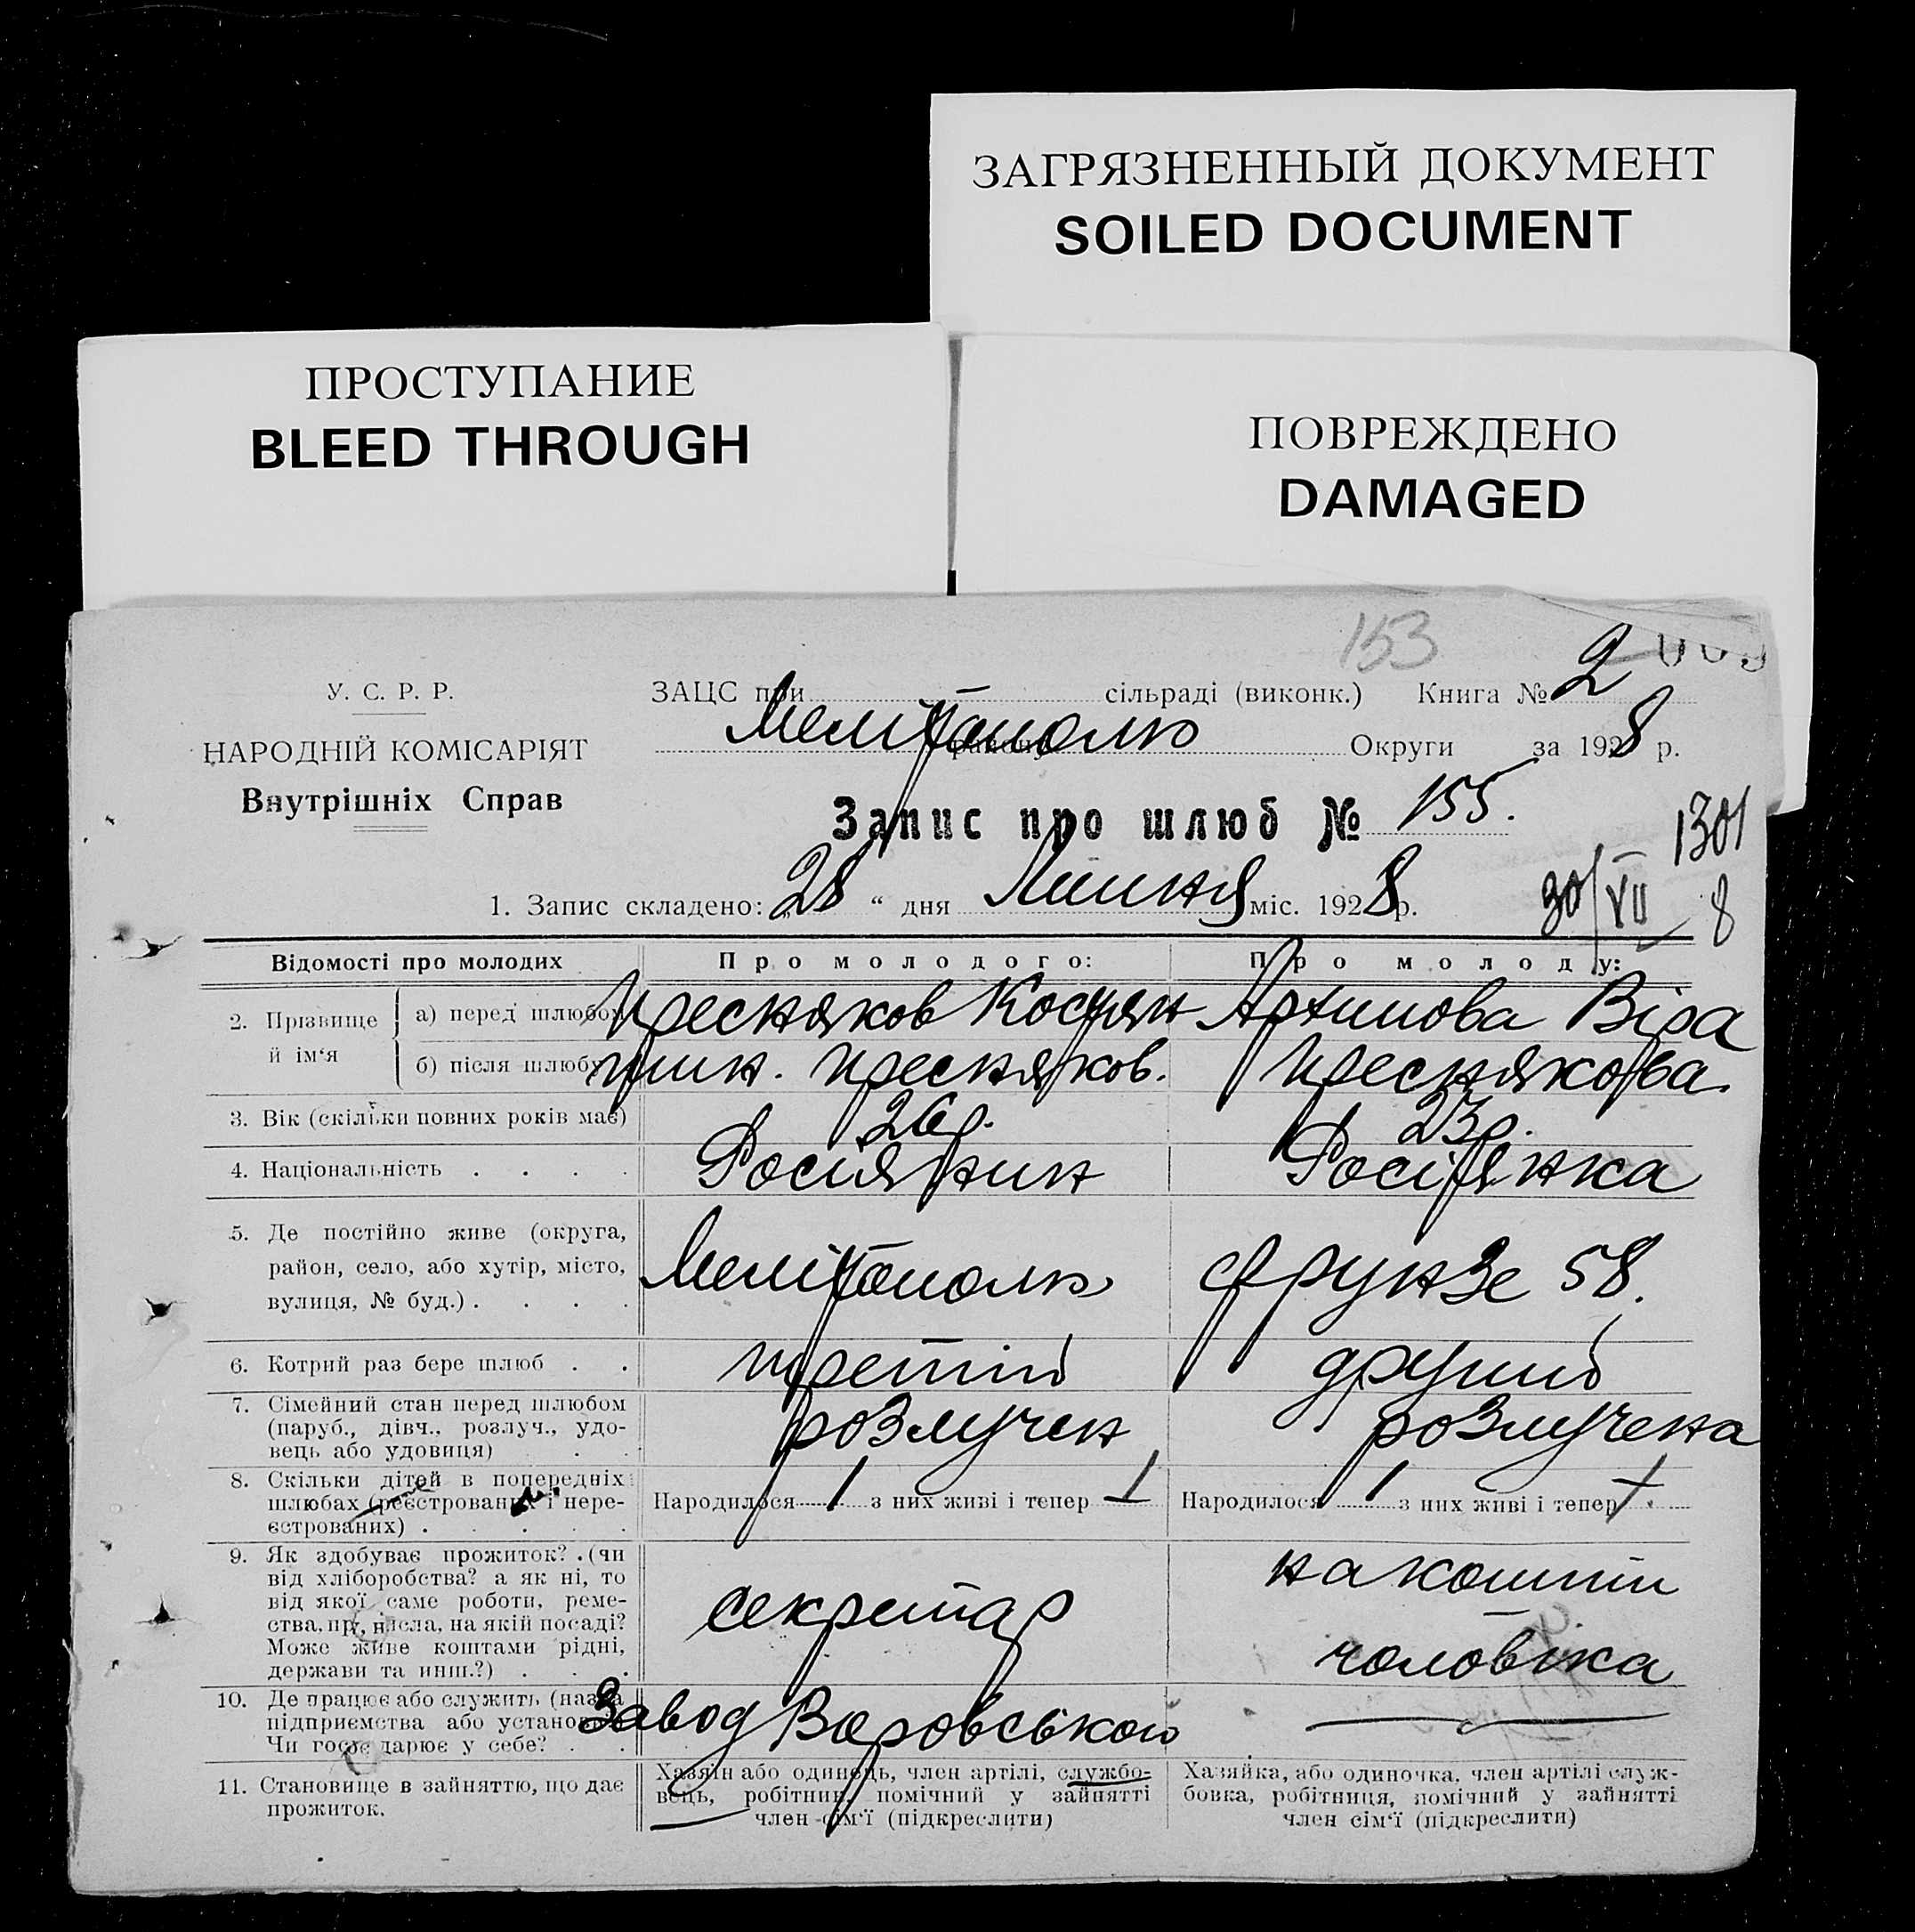 ЗАГРЯЗНЕННЫЙ ДОКУМЕНТ
SOILED DOCUMENT
ПРОСТУПАНИЕ
BLEED THROUGH
ПОВРЕЖДЕНО
DAMAGED
153
У. С. Р. Р.
НАРОДНІЙ КОМІСАРІЯТ
Внутрішніх Справ
ЗАЦС при сільраді (виконк.) Книга № 2
Мелітополь Округи за 1928 р.
Запис про шлюб № 155.
1301
1. Запис складено: „28“ дня Липня міс. 1928 р.
30/VII 8
Відомості про молодих Про молодого: Про молоду:
2. Прізвище й ім‘я
а) перед шлюбом Пресняков Костян Артимова Віра
б) після шлюбу тин. Пресняков. Преснякова.
3. Вік (скільки повних років має) 26 р. 23 р.
4. Національність . . . . Росіянин Росіянка
5. Де постійно живе (округа,
район, село, або хутір, місто,
вулиця, № буд.) . . . .
Мелітополь Фрунзе 58.
6. Котрий раз бере шлюб . . третій другий
7. Сімейний стан перед шлюбом
(паруб., дівч., розлуч., удо-
вець або удовиця) . .
розлучен розлучена
8. Скільки дітей в попередніх
шлюбах (реєстрованих і нере-
єстрованих) . . . . .
Народилося 1 з них живі і тепер 1
Народилося 1 з них живі і тепер †.
9. Як здобуває прожиток? . (чи
від хліборобства? а як ні, то
від якої саме роботи, реме-
ства, промисла, на якій посаді?
Може живе коштами рідні,
держави та инш.?) . . .
секретар
на кошти
чоловіка
10. Де працює або служить (назва
підприємства або установи)
Чи господарює у себе? . .
Завод Воровського
11. Становище в зайняттю, що дає
прожиток.
Хазяїн або одинець, член артілі, службо-
вець, робітник, помічний у зайнятті
член сім‘ї (підкреслити)
Хазяйка, або одиночка, член артілі служ-
бовка, робітниця, помічний у зайнятті
член сім‘ї (підкреслити)